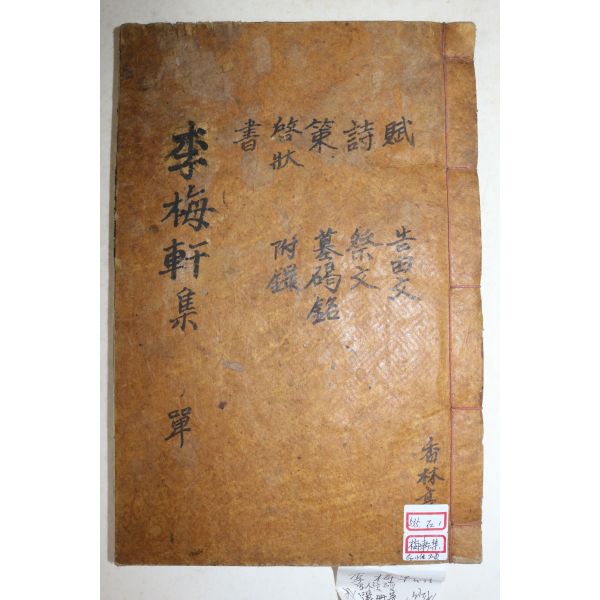 賦 告由文
詩 祭文
策 墓碣銘
啓狀 附錄
書
李梅軒集 單
香林亭
梅軒集